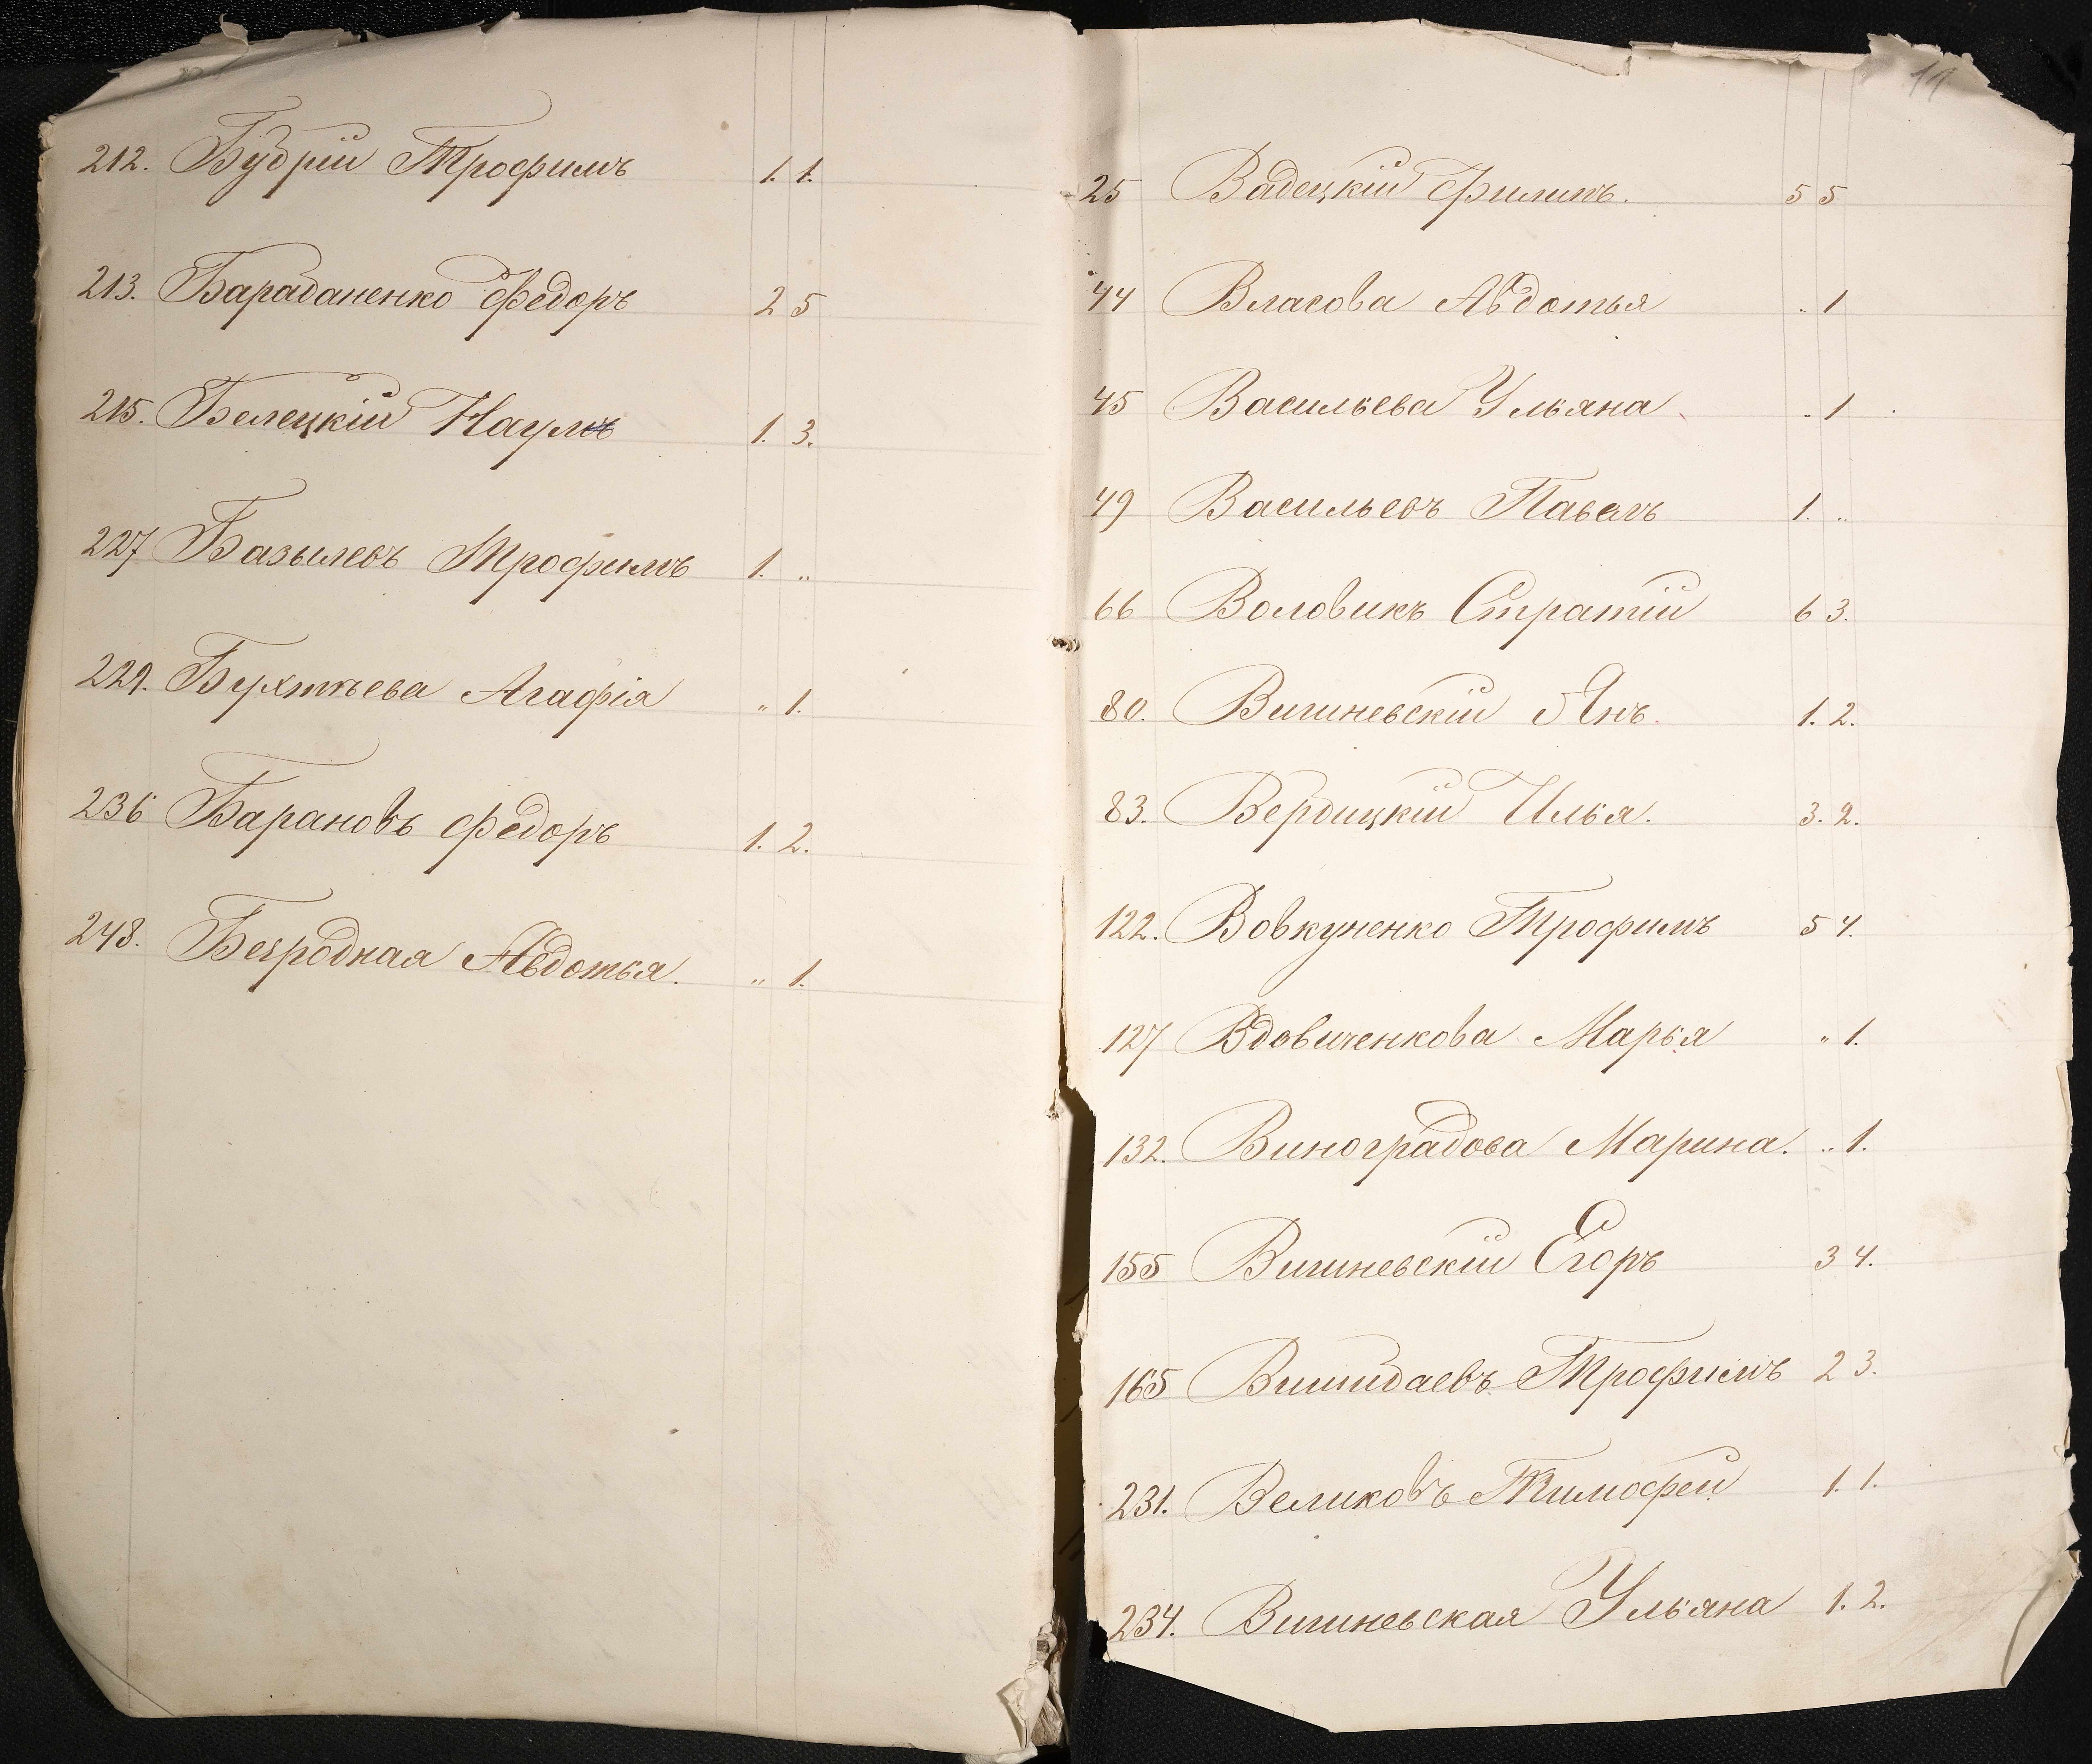 212. Будрій Трофимъ 1. 1.
213. Барабаненко Федоръ 2 5
215. Белецкій Наумъ 1. 3.
227 Базылевъ Трофимъ 1. "
229. Бухтѣева Агафія " 1.
236 Барановъ Федоръ 1. 2.
248. Безродная Авдотья. " 1.
11
25 Вадецкій Филипъ. 5 5
44 Власова Авдотья " 1
45 Васильева Ульяна " 1
49 Васильевъ Павелъ 1. "
66 Воловикъ Стратій 6 3.
80. Вишневскій Янъ. 1. 2.
83. Вердицкій Илья. 3. 2.
122. Вовкуненко Трофимъ 5 4.
127 Вдовиченкова Марья " 1.
132. Виноградова Марина. " 1.
155 Вишневскій Егоръ 3 4.
165 Трофимъ 2 3.
231. Великовъ Тимофей 1. 1.
234. Вишневская Ульяна 1. 2.